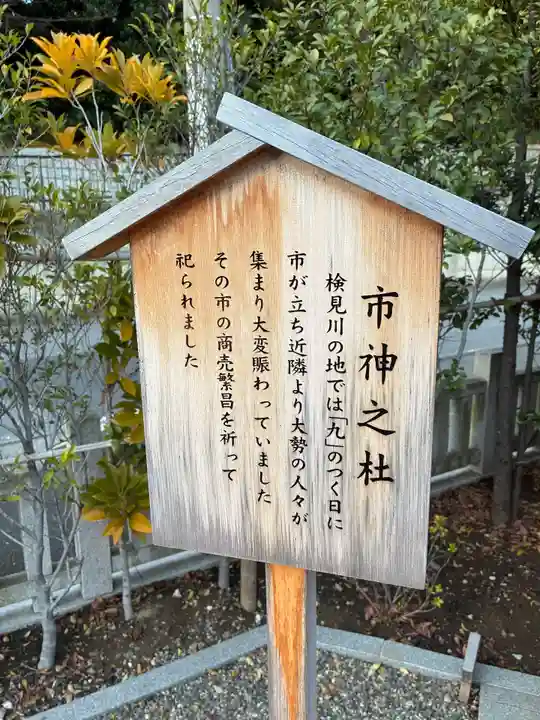 市神之杜
検見川の地では「九」のつく日に
市が立ち近隣より大勢の人々が
集まり大変賑わっていました
その市の商売繁昌を祈って
祀られました